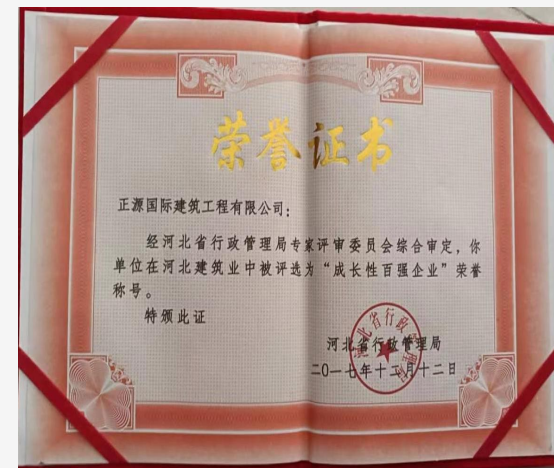 荣誉证书
正源国际建筑工程有限公司：
经河北省行政管理局专家评审委员会综合审定，你
单位在河北建筑业中被评选为“成长性百强企业”荣誉
称号。
特颁此证
河北省行政管理局
二〇一七年十二月十二日